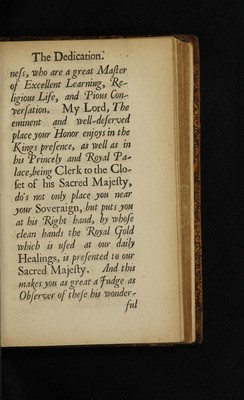 The Dedication.
neſs, who are a great Maſter
of Excellent Learning, Re-
ligious Life, and Pious Con-
verſation. My Lord, The
eminent and well-deſerved
place your Honor enjoys in the
Kings preſence, as well as in
his Princely and Royal Pa-
lace, being Clerk to the Clo-
ſet of his Sacred Majeſty,
do's not only place you near
your Soveraign, but puts you
at his Right hand, by whoſe
clean hands the Royal Gold
which is uſed at our daily
Healings, is preſented to our
Sacred Majeſty. And this
makes you as great a Judge as
Obſerver of theſe his wonder-
ful